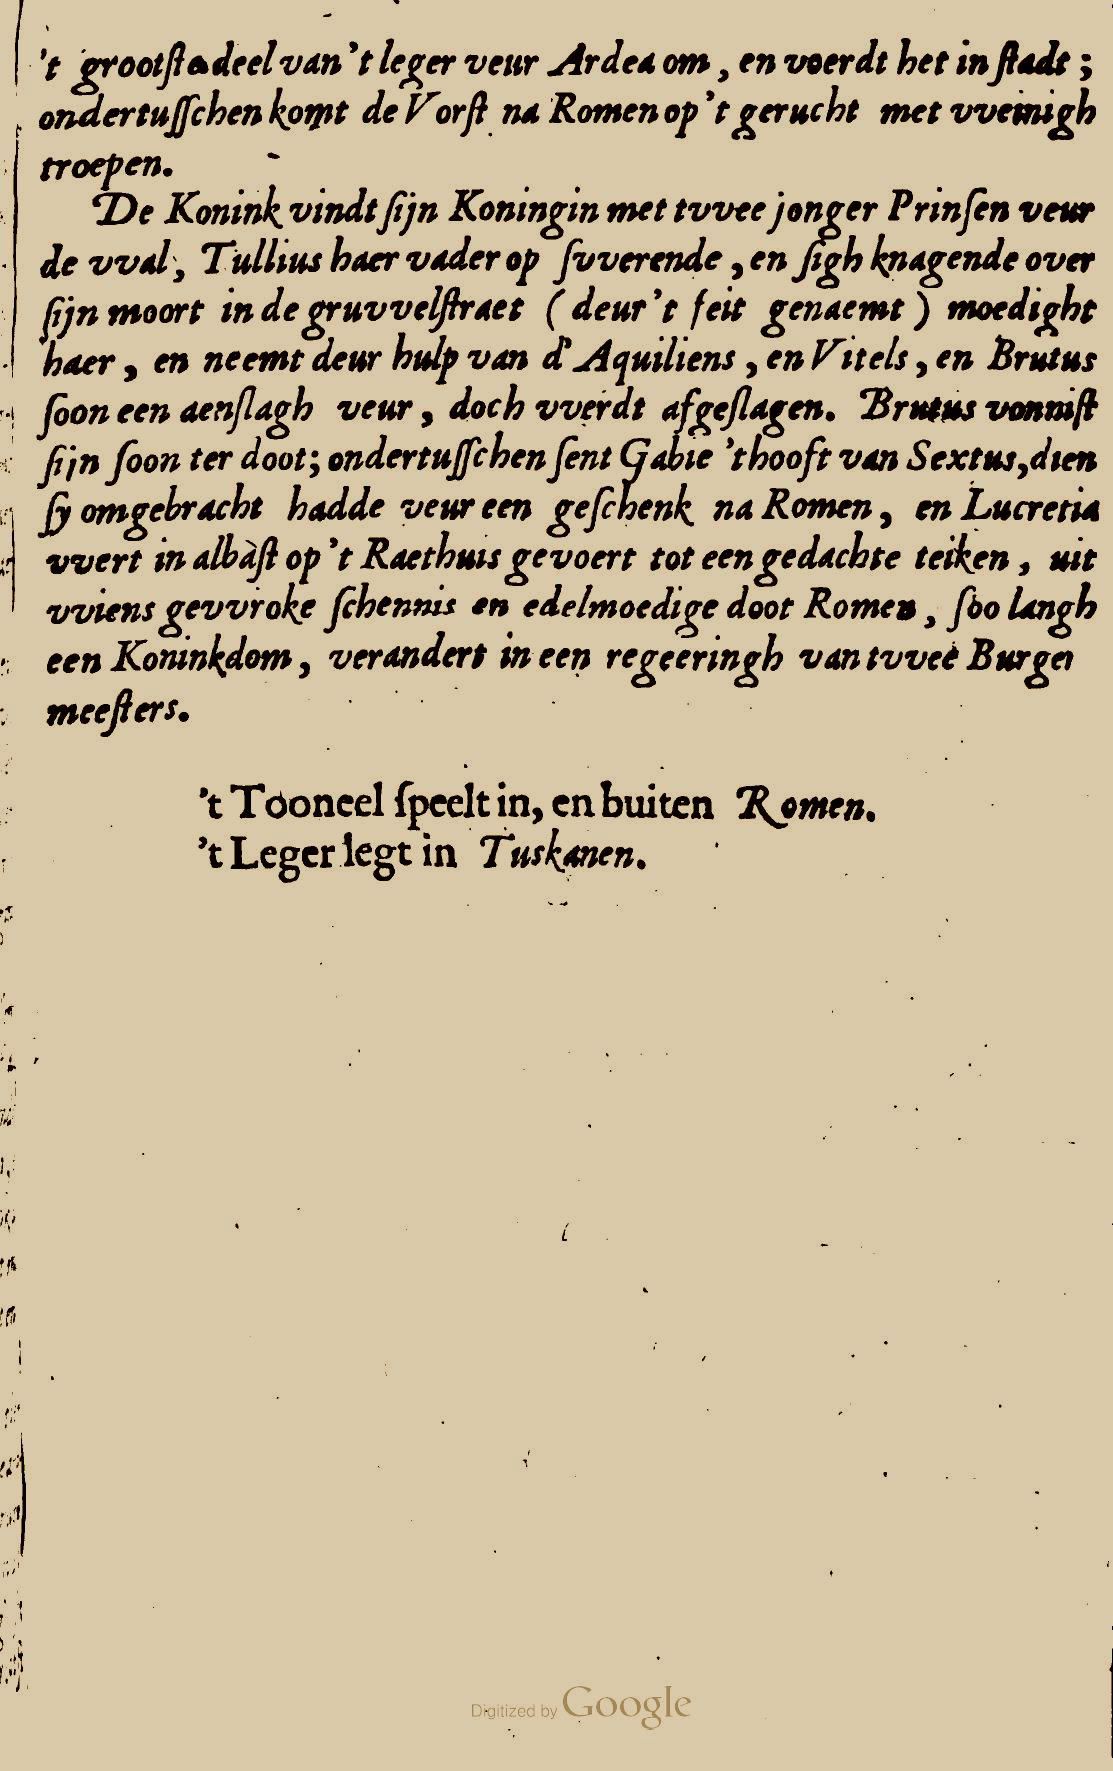 't grootste deel van 't leger veur Ardea om, en voerdt het in ſtadt;
ondertuſſchen komt de Vorſt na Romen op 't gerucht met vveinigh
troepen.
De Konink vindt ſijn Koningin met tvvee jonger Prinſen veur
de vval, Tullius haer vader op ſvverende, en ſigh knagende over
ſijn moort in de gruvvelſtraet ( deur 't feit genaemt ) moedight
haer, en neemt deur hulp van d' Aquiliens, en Vitels, en Brutus
ſoon een aenſlagh veur, doch vverdt afgeſlagen. Brutus vonniſt
ſijn ſoon ter doot; ondertuſſchen ſent Gabie 't hooft van Sextus, dien
ſy omgebracht hadde veur een geſchenk na Romen, en Lucretia
vvert in albaſt op 't Raethuis gevoert tot een gedachte teiken, uit
vviens gevvroke ſchennis en edelmoedige doot Romen, ſoo langh
een Koninkdom, verandert in een regeeringh van tvvee Burger
meeſters.
't Tooneel ſpeelt in, en buiten Romen.
't Leger legt in Tuskanen.
Digitized by Google